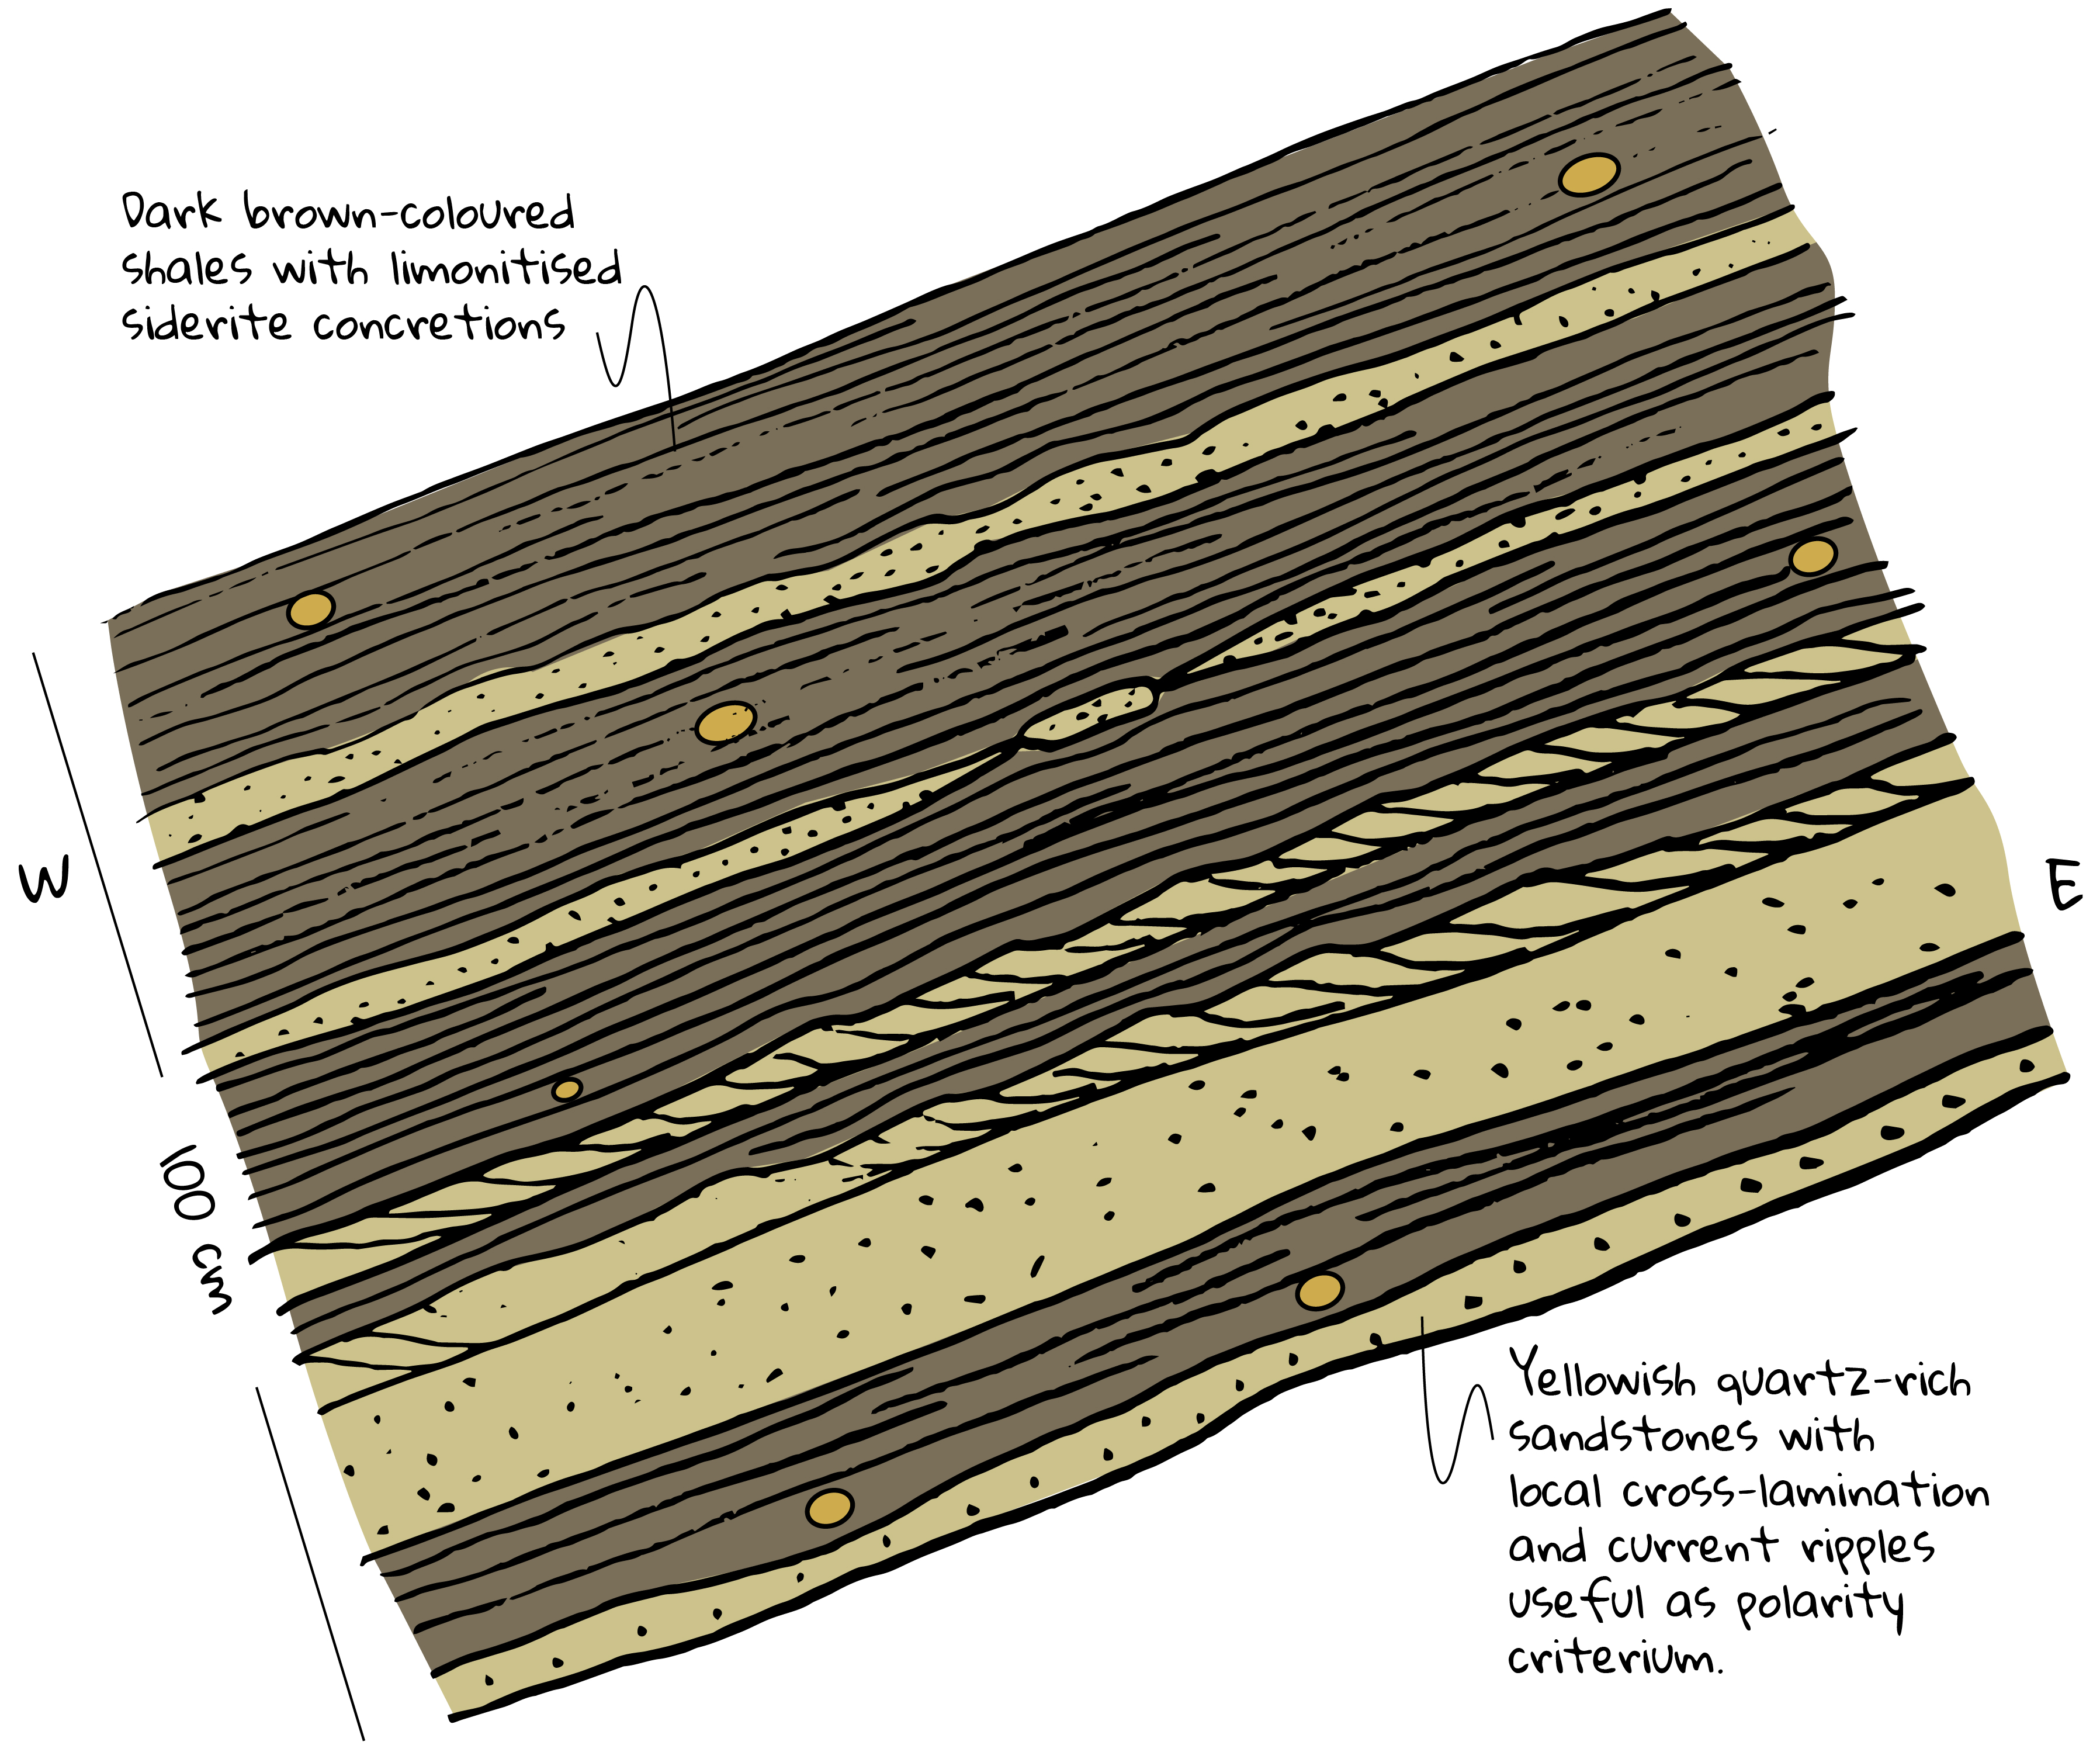 Dark brown-coloured
shales with limonitised
siderite concretions
W
E
100 cm
Yellowish quartz-rich
sandstones with
local cross-lamination
and current ripples
useful as polarity
criterium.